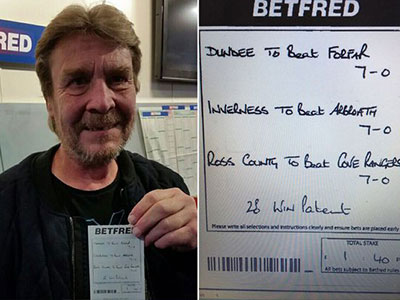 FRED
BETFRED
BETFRED
DUNDEE TO Beat FORFAR
7-0
INVERNESS TO Beat ARBROATH
7-0
ROSS COUNTY TO Beat COVE RANGERS
7-0
Win Patent
Please write all selections and instructions clearly and ensure bets are placed early
TOTAL STAKE
1 40
All bets subject to Betfred rules